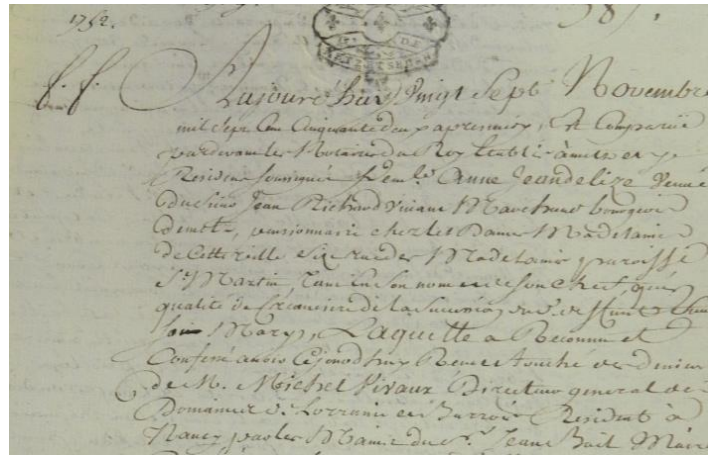 1752.
587.
f. f.
Aujourd'huy Vingt Sept Novembre
mil sept Cent Cinquante deux apres midy, Est Comparüe
pardevant les Notaires du Roy Etablis à metz et y
Residens soussignés D.elle Anne Jeandelize Veuve
du sieur Jean Richard vivant Marchand bourgeois
demetz, pensionnaire chez les Dames Madelaine
de Cette ville size rue des Madelaines paroisse
St Martin, tant En son nom et de son Chef, qu'en
qualité de Creanciere de la Succession du S.
son Mary, Laquelle a Reconnu et
Confessé avoir Cejourd'huy Receu et touché des deniers
de M. Michel Pivaux Directeur general des
Domaines de Lorraine et Barrois Resident à
Nancy par les Mains du S. Jean